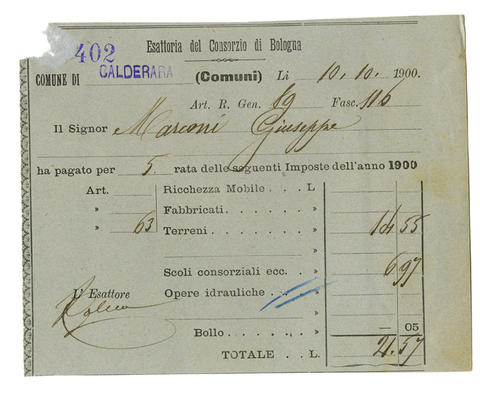 402
Esattoria del Consorzio di Bologna
COMUNE DI CALDERARA (Comuni) Li 10. 10. 1900.
Art. R. Gen. 89 Fasc. 116
Il Signor Marconi Giuseppe
ha pagato per 5. rata delle seguenti Imposte dell'anno 1900
Art. Ricchezza Mobile . . . L
» Fabbricati. . . . . . . . »
» 63 Terreni . . . . . . . . . » 14 55
»
Scoli consorziali ecc. . » 6 97
L'Esattore Opere idrauliche . . . »
Bollo. . . . . . » — 05
TOTALE . . L. 21.57